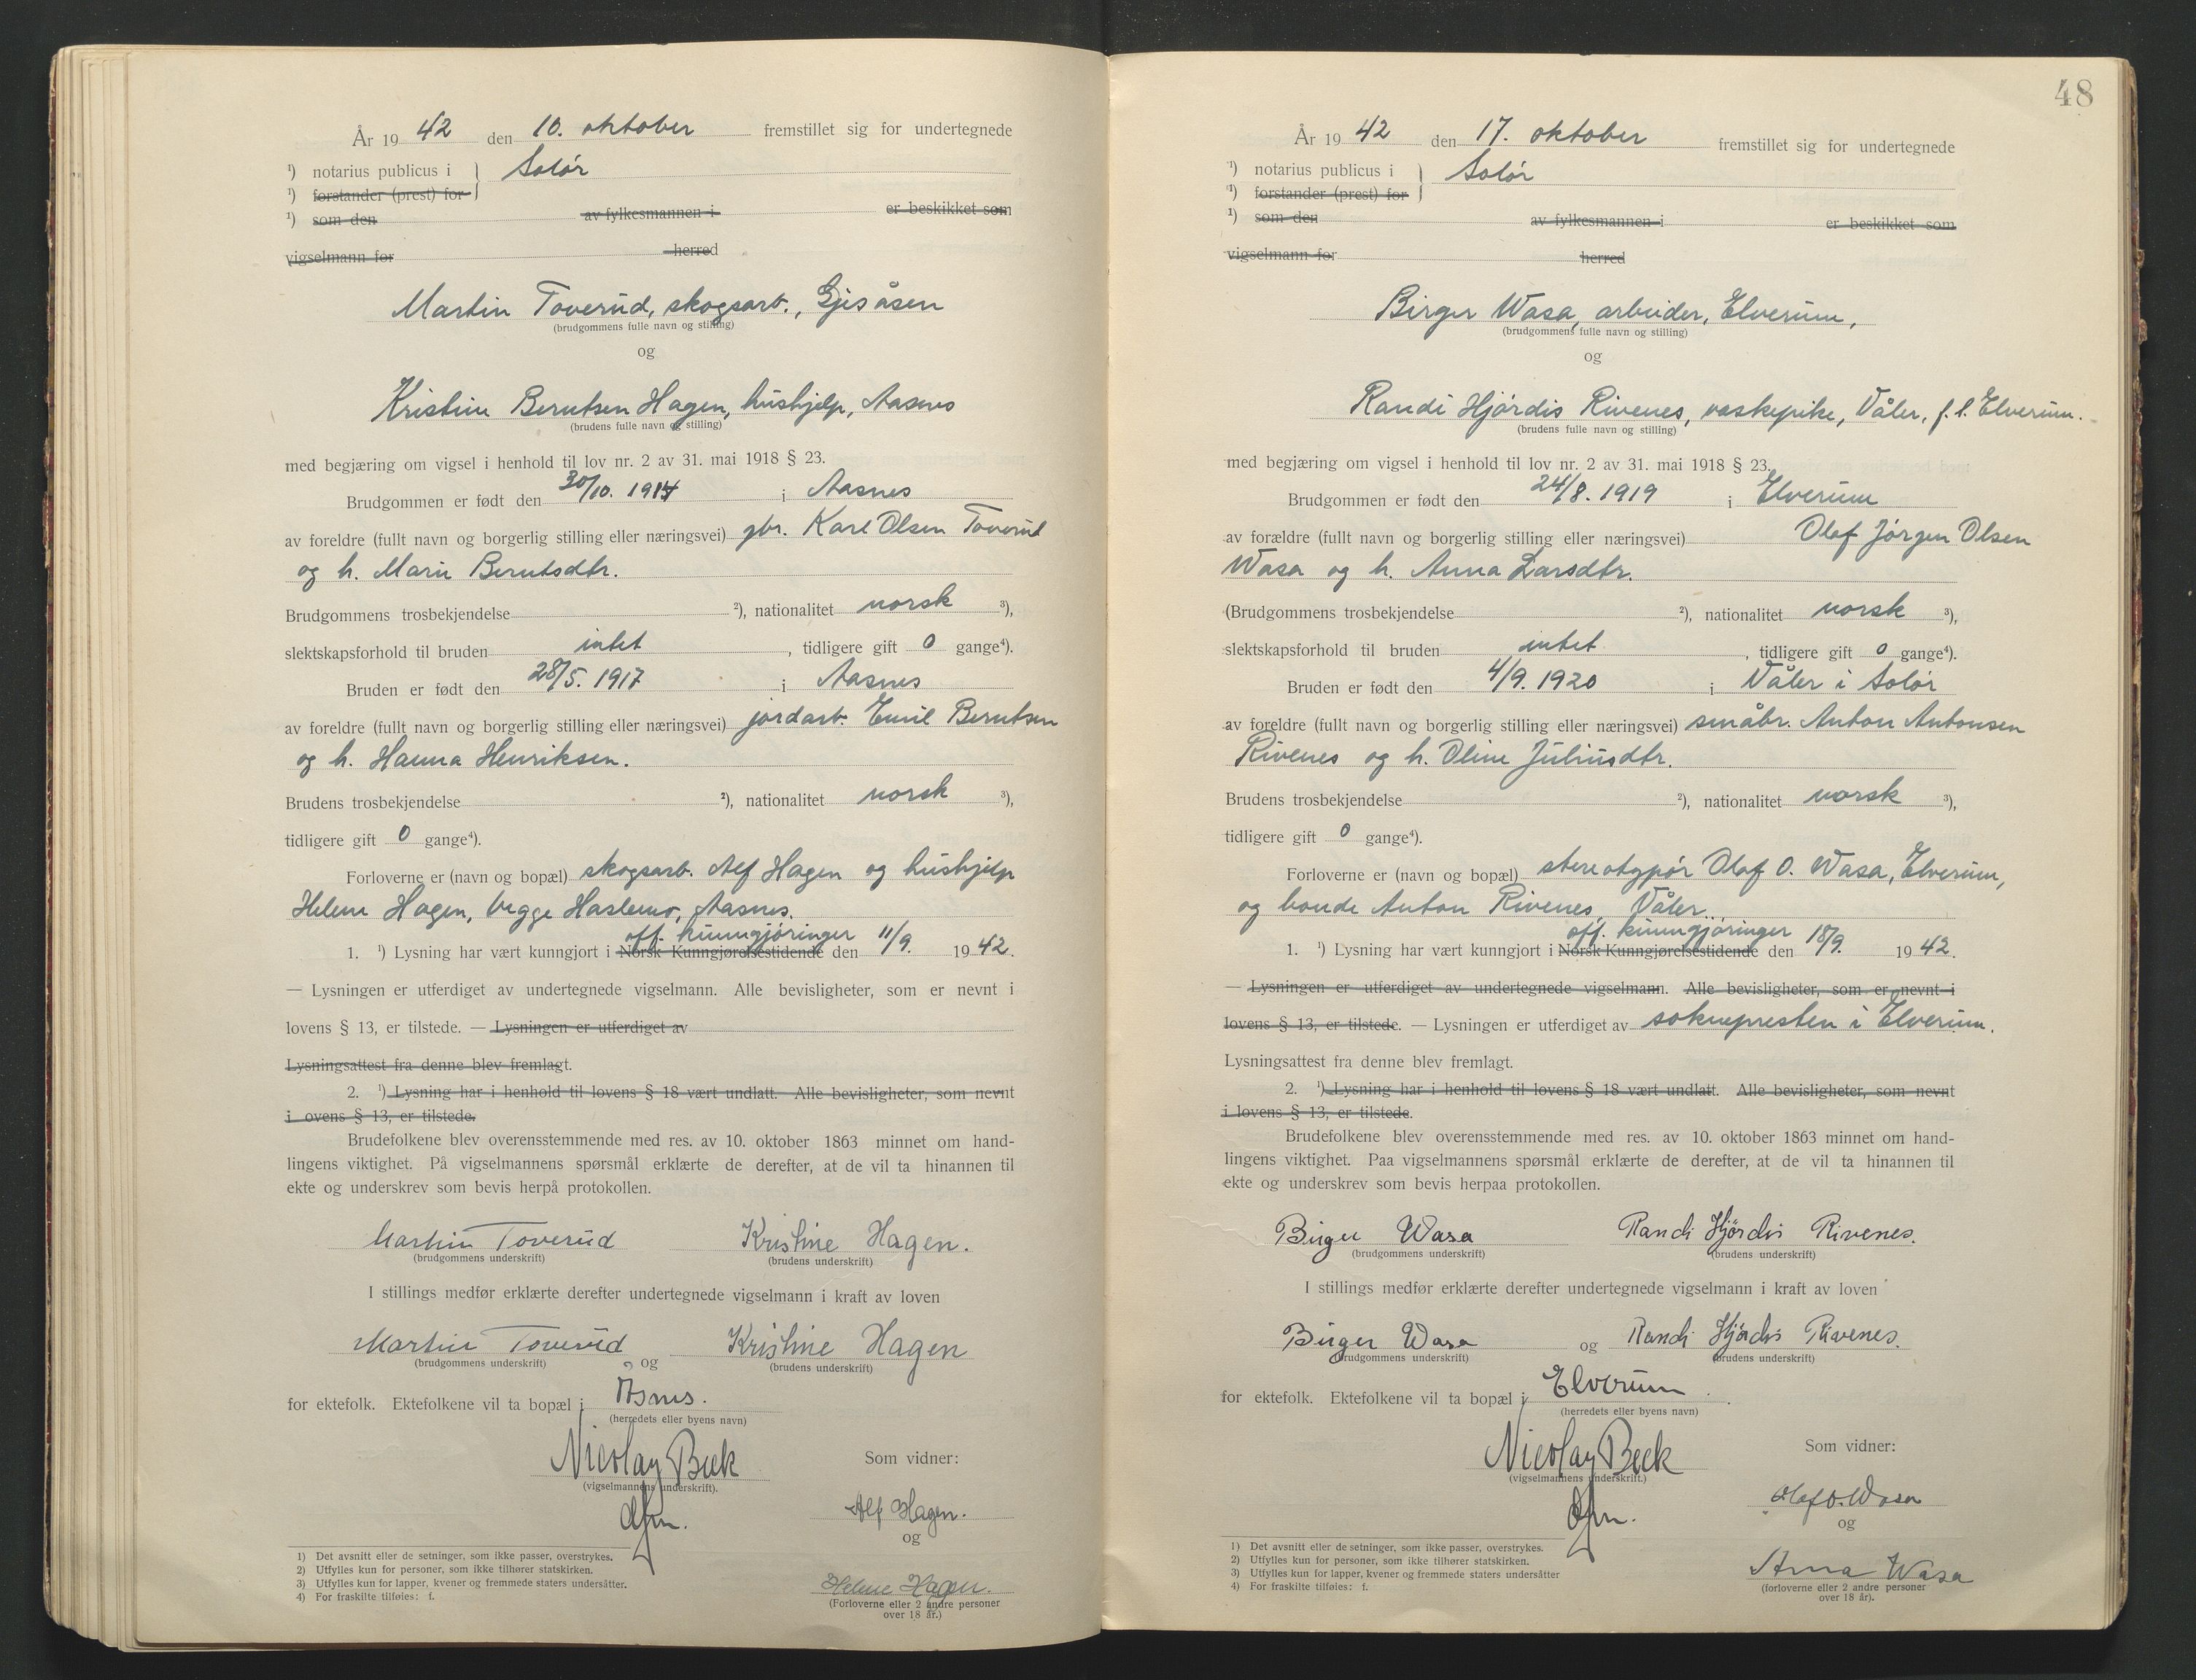 År 19 42 den 10. oktober fremstillet sig for undertegnede
¹) notarius publicus i } Solør
¹) forstander (prest) for
¹) som den av fylkesmannen i er beskikket som
vigselmann for herred
Martin Toverud, skogsarb., Gjesåsen
(brudgommens fulle navn og stilling)
og
Kristine Berntsen Hagen, hushjelp, Aasnes
(brudens fulle navn og stilling)
med begjæring om vigsel i henhold til lov nr. 2 av 31. mai 1918 § 23.
Brudgommen er født den 30/10. 1914 i Aasnes
av foreldre (fullt navn og borgerlig stilling eller næringsvei) gbr. Karl Olsen Toverud
og h. Marie Berntsdtr.
Brudgommens trosbekjendelse ²), nationalitet norsk ³),
slektskapsforhold til bruden intet, tidligere gift 0 gange⁴).
Bruden er født den 28/5. 1917 i Aasnes
av foreldre (fullt navn og borgerlig stilling eller næringsvei) jordarb. Emil Berntsen
og h. Hanna Henriksen.
Brudens trosbekjendelse ²), nationalitet norsk ³),
tidligere gift 0 gange⁴).
Forloverne er (navn og bopæl) skogsarb. Alf Hagen og hushjelp
Helene Hagen, begge Haslemo, Aasnes.
off. kunngjøringer
1. ¹) Lysning har vært kunngjort i Norsk Kunngjørelsestidende den 11/9. 19 42.
— Lysningen er utferdiget av undertegnede vigselmann. Alle bevisligheter, som er nevnt i
lovens § 13, er tilstede. — Lysningen er utferdiget av
Lysningsattest fra denne blev fremlagt.
2. ¹) Lysning har i henhold til lovens § 18 vært undlatt. Alle bevisligheter, som nevnt
i ovens § 13, er tilstede.
Brudefolkene blev overensstemmende med res. av 10. oktober 1863 minnet om hand-
lingens viktighet. På vigselmannens spørsmål erklærte de derefter, at de vil ta hinannen til
ekte og underskrev som bevis herpå protokollen.
Martin Toverud Kristine Hagen.
(brudgommens underskrift) (brudens underskrift)
I stillings medfør erklærte derefter undertegnede vigselmann i kraft av loven
Martin Toverud og Kristine Hagen
(brudgommens underskrift) (brudens underskrift)
for ektefolk. Ektefolkene vil ta bopæl i Åsnes.
(herredets eller byens navn)
Nicolay Beck
(vigselmannens underskrift).
Som vidner:
Alf Hagen.
og
Helene Hagen.
(Forloverne eller 2 andre personer
over 18 år.)
1) Det avsnitt eller de setninger, som ikke passer, overstrykes.
2) Utfylles kun for personer, som ikke tilhører statskirken.
3) Utfylles kun for lapper, kvener og fremmede staters undersåtter.
4) For fraskilte tilføies: f.
48
År 19 42 den 17. oktober fremstillet sig for undertegnede
¹) notarius publicus i } Solør
¹) forstander (prest) for
¹) som den av fylkesmannen i er beskikket som
vigselmann for herred
Birger Wasa, arbeider, Elverum,
(brudgommens fulle navn og stilling)
og
Randi Hjørdis Rivenes, vaskepike, Våler, f. t. Elverum.
(brudens fulle navn og stilling)
med begjæring om vigsel i henhold til lov nr. 2 av 31. mai 1918 § 23.
Brudgommen er født den 24/8. 1919 i Elverum
av forældre (fullt navn og borgerlig stilling eller næringsvei) Olaf Jørgen Olsen
Wasa og h. Anna Larsdtr.
(Brudgommens trosbekjendelse ²), nationalitet norsk ³),
slektskapsforhold til bruden intet, tidligere gift 0 gange⁴).
Bruden er født den 4/9. 1920 i Våler i Solør
av foreldre (fullt navn og borgerlig stilling eller næringsvei) småbr. Anton Antonsen
Rivenes og h. Oline Juliusdtr.
Brudens trosbekjendelse ²), nationalitet norsk ³),
tidligere gift 0 gange⁴).
Forloverne er (navn og bopæl) stereotypør Olaf O. Wasa, Elverum,
og bonde Anton Rivenes, Våler.
off. kunngjøringer
1. ¹) Lysning har vært kunngjort i Norsk Kunngjørelsestidende den 18/9. 19 42.
— Lysningen er utferdiget av undertegnede vigselmann. Alle bevisligheter, som er nevnt i
lovens § 13, er tilstede. — Lysningen er utferdiget av soknepresten i Elverum.
Lysningsattest fra denne blev fremlagt.
2. ¹) Lysning har i henhold til lovens § 18 vært undlatt. Alle bevisligheter, som nevnt
i lovens § 13, er tilstede.
Brudefolkene blev overensstemmende med res. av 10. oktober 1863 minnet om hand-
lingens viktighet. Paa vigselmannens spørsmål erklærte de derefter, at de vil ta hinannen til
ekte og underskrev som bevis herpaa protokollen.
Birger Wasa Randi Hjørdis Rivenes.
(brudgommens underskrift) (brudens underskrift)
I stillings medfør erklærte derefter undertegnede vigselmann i kraft av loven
Birger Wasa og Randi Hjørdis Rivenes.
(brudgommens underskrift) (brudens underskrift)
for ektefolk. Ektefolkene vil ta bopæl i Elverum.
(herredets eller byens navn)
Nicolay Beck
(vigselmannens underskrift.)
Som vidner:
Olaf O. Wasa
og
Anna Wasa
(forloverne eller 2 andre personer
over 18 år).
1) Det avsnitt eller de setninger, som ikke passer, overstrykes.
2) Utfylles kun for personer, som ikke tilhører statskirken.
3) Utfylles kun for lapper, kvener og fremmede staters undersåtter
4) For fraskilte tilføies: f.